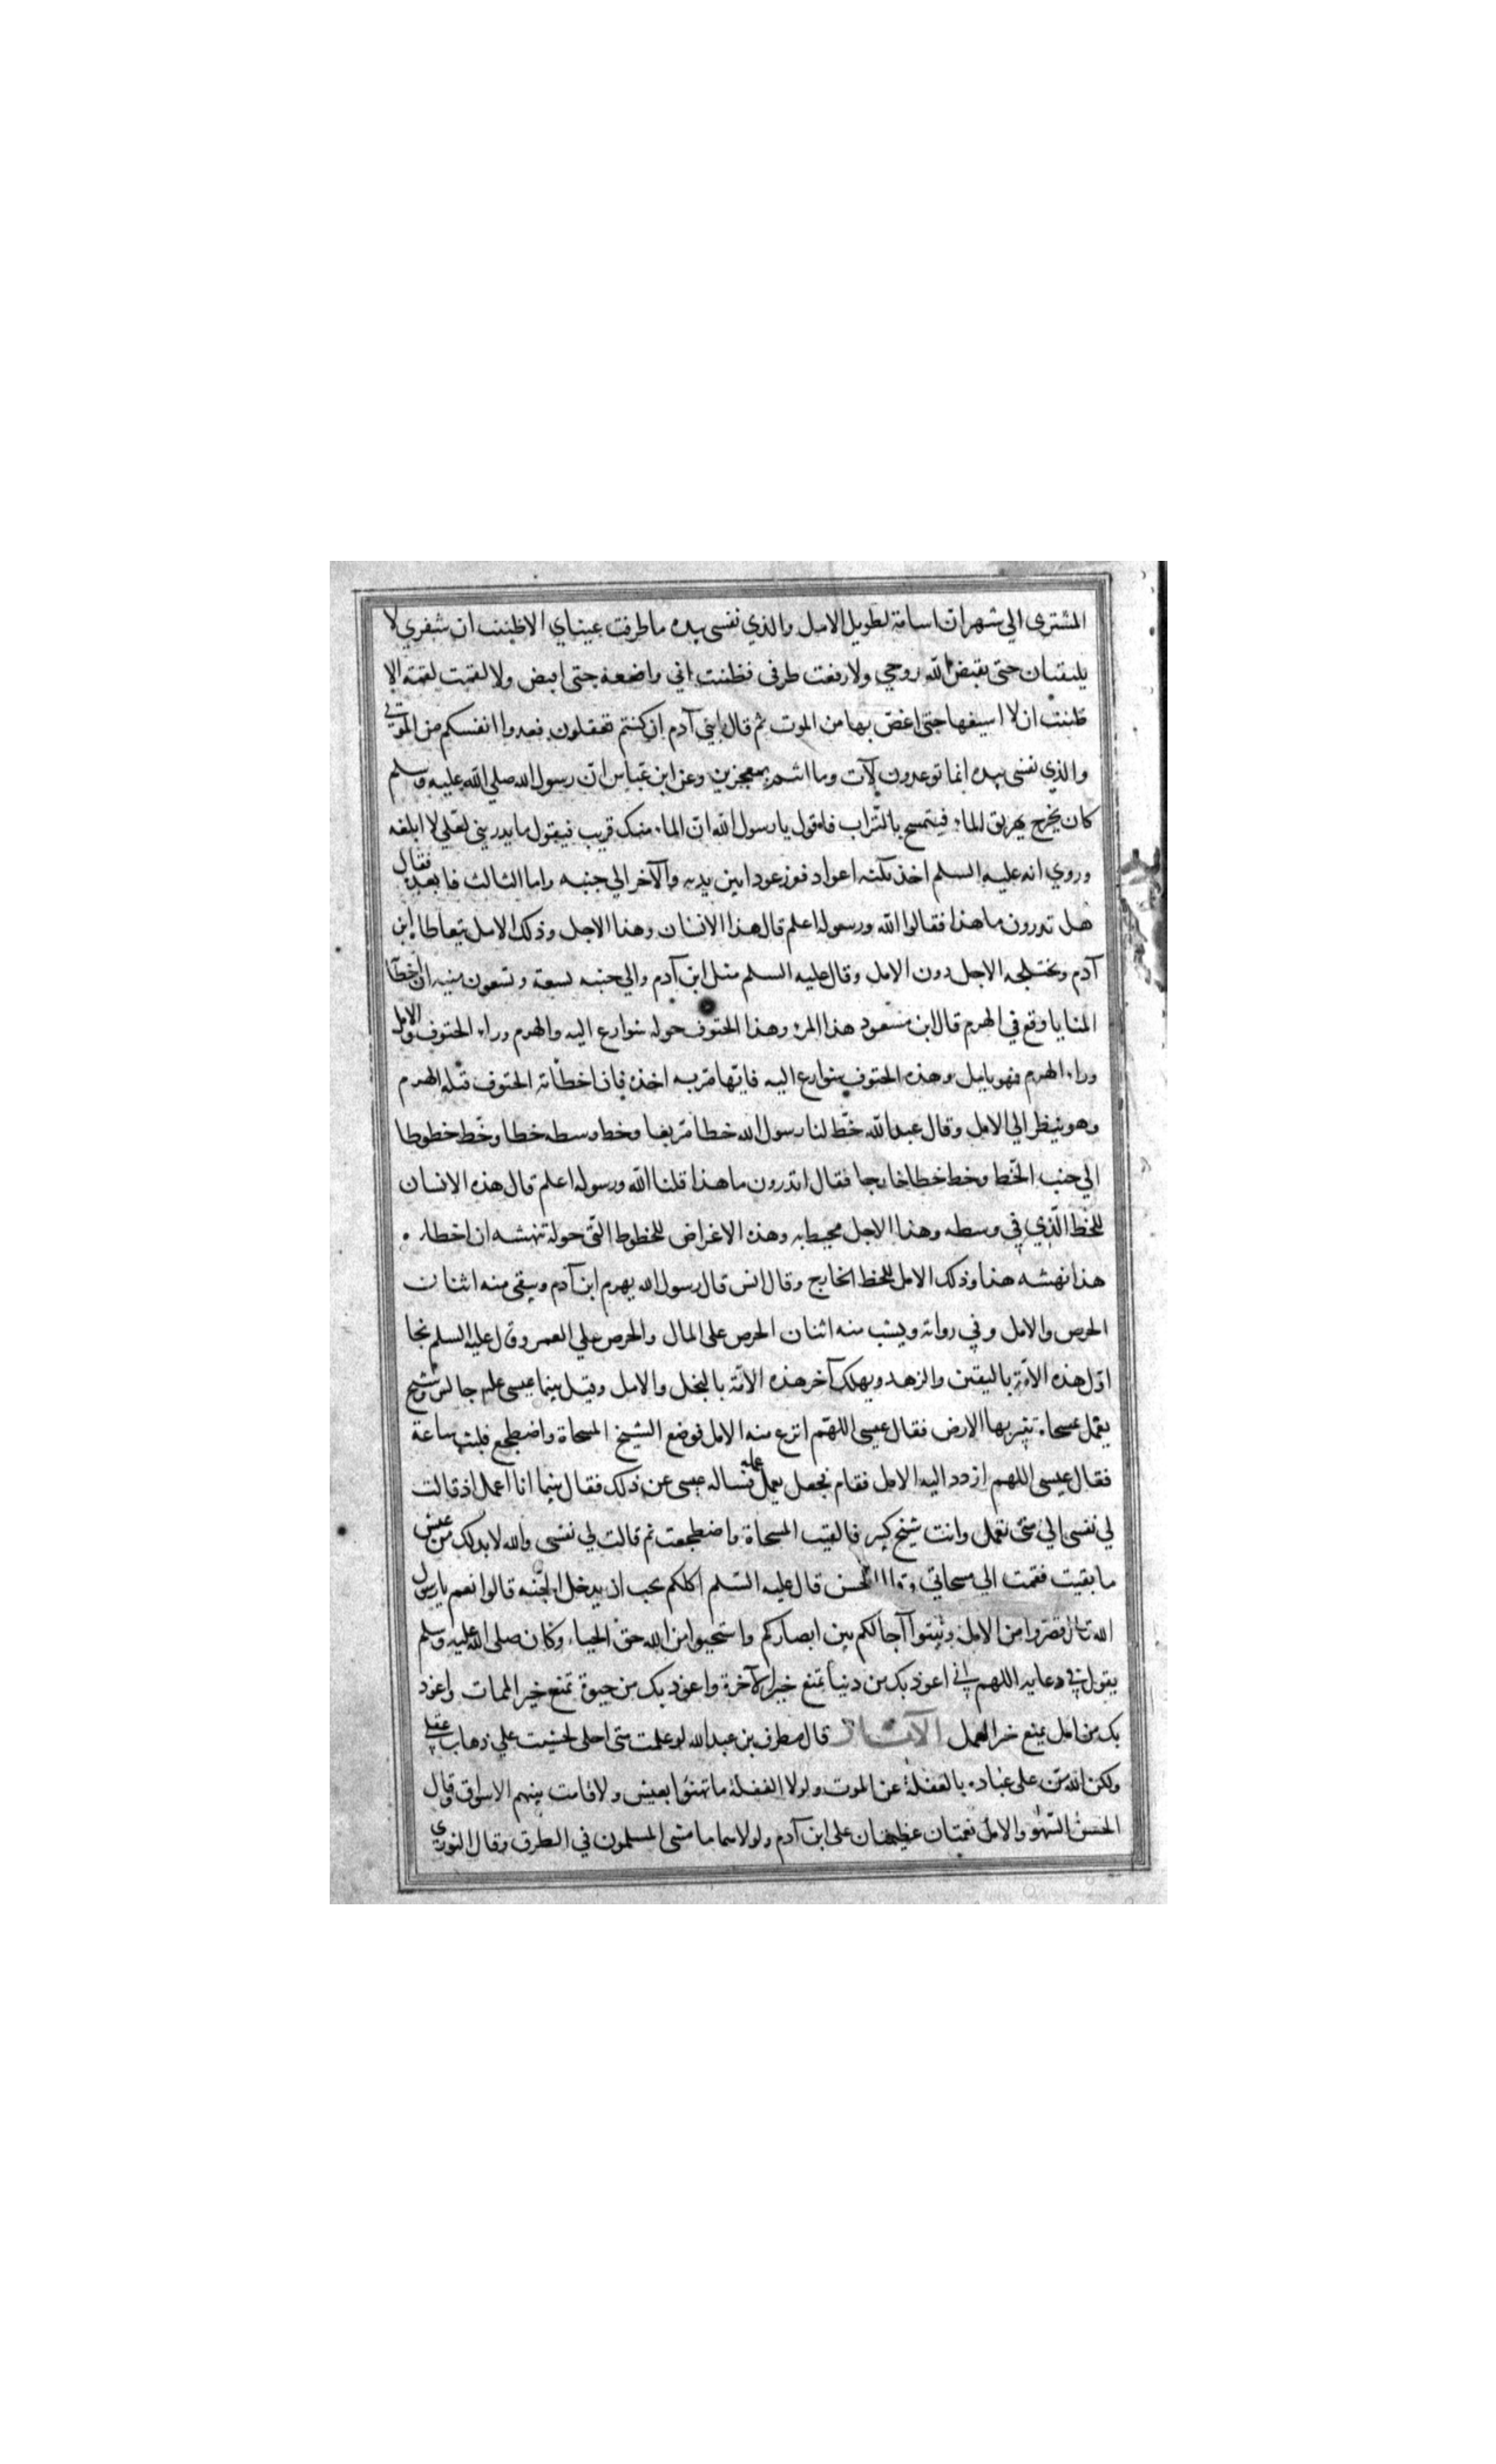 المشترى الي شهر ان اسامة لطويل الامل والذي نفسى بيده ما طرفت عيناي الا ظننت ان شفري لا
يلتقيان حتى يقبض الله روحي ولا رفعت طرفى فظننت اني واضعه حتى اقبض ولا لقمت لقمة الا
ظننت ان لا اسيغها حتى اغص بها من الموت ثم قال يا بني آدم ان كنتم تعقلون فعدوا انفسكم من الموتى
والذي نفسى بيده انما توعدون لآت وما انتم بمعجزين وعن ابن عباس ان رسول الله صلي الله عليه وسلم
كان يخرج يهريق الماء فيتمسح بالتراب فاقول يا رسول الله ان الماء منك قريب فيقول ما يدريني لعلي لا ابلغه
وروي انه عليه السلم اخذ ثلثه اعواد فغرز عودا بين يديه والآخر الي جنبه واما الثالث فابعده فقال
هل تدرون ما هذا فقالوا الله ورسوله اعلم قال هذا الانسان وهذا الاجل وذلك الامل يتعاطاه ابن
آدم ويختلجه الاجل دون الامل وقال عليه السلم مثل ابن آدم والي جنبه تسعة وتسعون منيه ان اخطأته
المنايا وقع في الهرم قال ابن مسعود هذا المرء وهذا الحتوف حوله شوارع اليه والهرم وراء الحتوف والامل
وراء الهرم فهو يامل وهذه الحتوف شوارع اليه فايها امر به اخذه فان اخطأته الحتوف قتله الهرم
وهو ينظر الي الامل وقال عبد الله خط لنا رسول الله خطا مربعا وخط وسطه خطا وخط خطوطا
الي جنب الخط وخط خطا خارجا فقال اتدرون ما هذا قلنا الله ورسوله اعلم قال هذه الانسان
للخط الذي في وسطه وهذا الاجل محيط به وهذه الاغراض للخطوط التي حوله تنهشه ان اخطاه
هذا نهشه هذا وذلك الامل للخط الخارج وقال انس قال رسول الله يهرم ابن آدم ويبقى منه اثنان
الحرص والامل وفي رواية ويشب منه اثنان الحرص على المال والحرص علي العمر وقال عليه السلم نجا
اول هذه الامة باليقين والزهد ويهلك آخر هذه الامة بالبخل والامل وقيل بينما عيسى علم جالس وشيخ
يعمل بمسحاة يثير بها الارض فقال عيسى اللهم انزع منه الامل فوضع الشيخ المسحاة واضطجع فلبث ساعة
فقال عيسى اللهم ازدد اليه الامل فقام فجعل يعمل عمله فساله عيسى عن ذلك فقال بينما انا اعمل اذ قالت
لي نفسى الي متى تعمل وانت شيخ كبير فالقيت المسحاة واضطجعت ثم قالت لي نفسى والله لا بد لك من عيش
ما بقيت فقمت الي مسحاتي وقال الحسن قال عليه السلم اكلكم يحب ان يدخل الجنه قالوا نعم يا رسول
الله قال قصروا من الامل وثبتوا آجالكم بين ابصاركم واستحيوا من الله حق الحياء وكان صلى الله عليه وسلم
يقول في دعايه اللهم اني اعوذ بك من دنيا تمنع خير الآخرة واعوذ بك من حيوة تمنع خير الممات واعوذ
بك من امل يمنع خير العمل الآثار قال مطرف بن عبد الله لو علمت متى اجلى لخشيت علي ذهاب عقلي
ولكن الله من على عباده بالغفلة عن الموت ولولا الغفلة ما تهنوا بعيش ولا قامت بينهم الاسواق وقال
الحسن السهو والامل نعمتان عظيمتان على ابن آدم ولولاهما ما مشى المسلمون في الطرق وقال الثوري